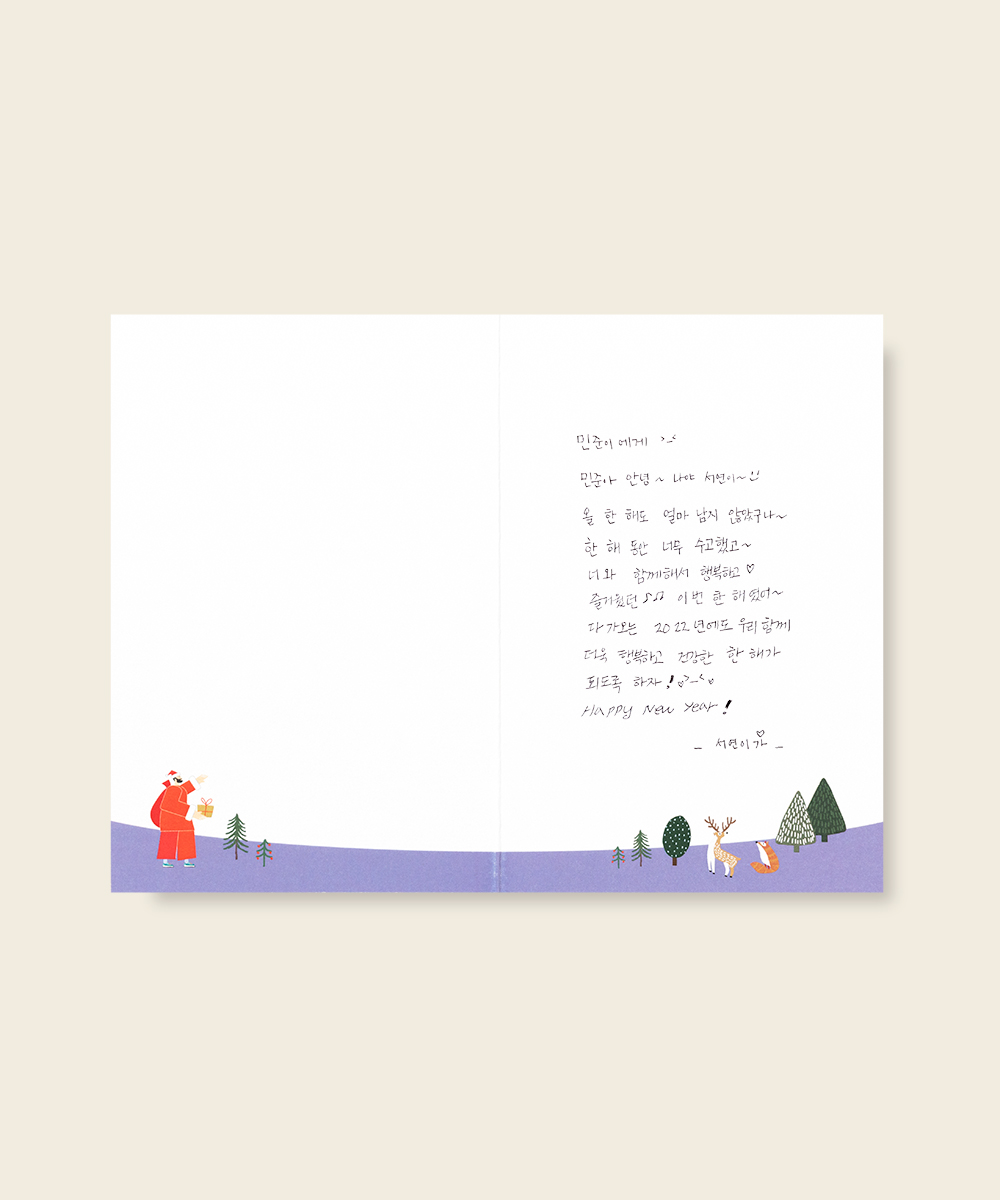 민준이에게 >_<
민준아 안녕~ 나야 서연이~
올 한 해도 얼마 남지 않았구나~
한 해 동안 너무 수고했고~
너와 함께해서 행복하고♡
즐거웠던 ♪♫ 이번 한 해였어~
다가오는 2022년에도 우리 함께
더욱 행복하고 건강한 한 해가
되도록 하자! ♡>_<♡
Happy New Year!
- 서연이가♡ -